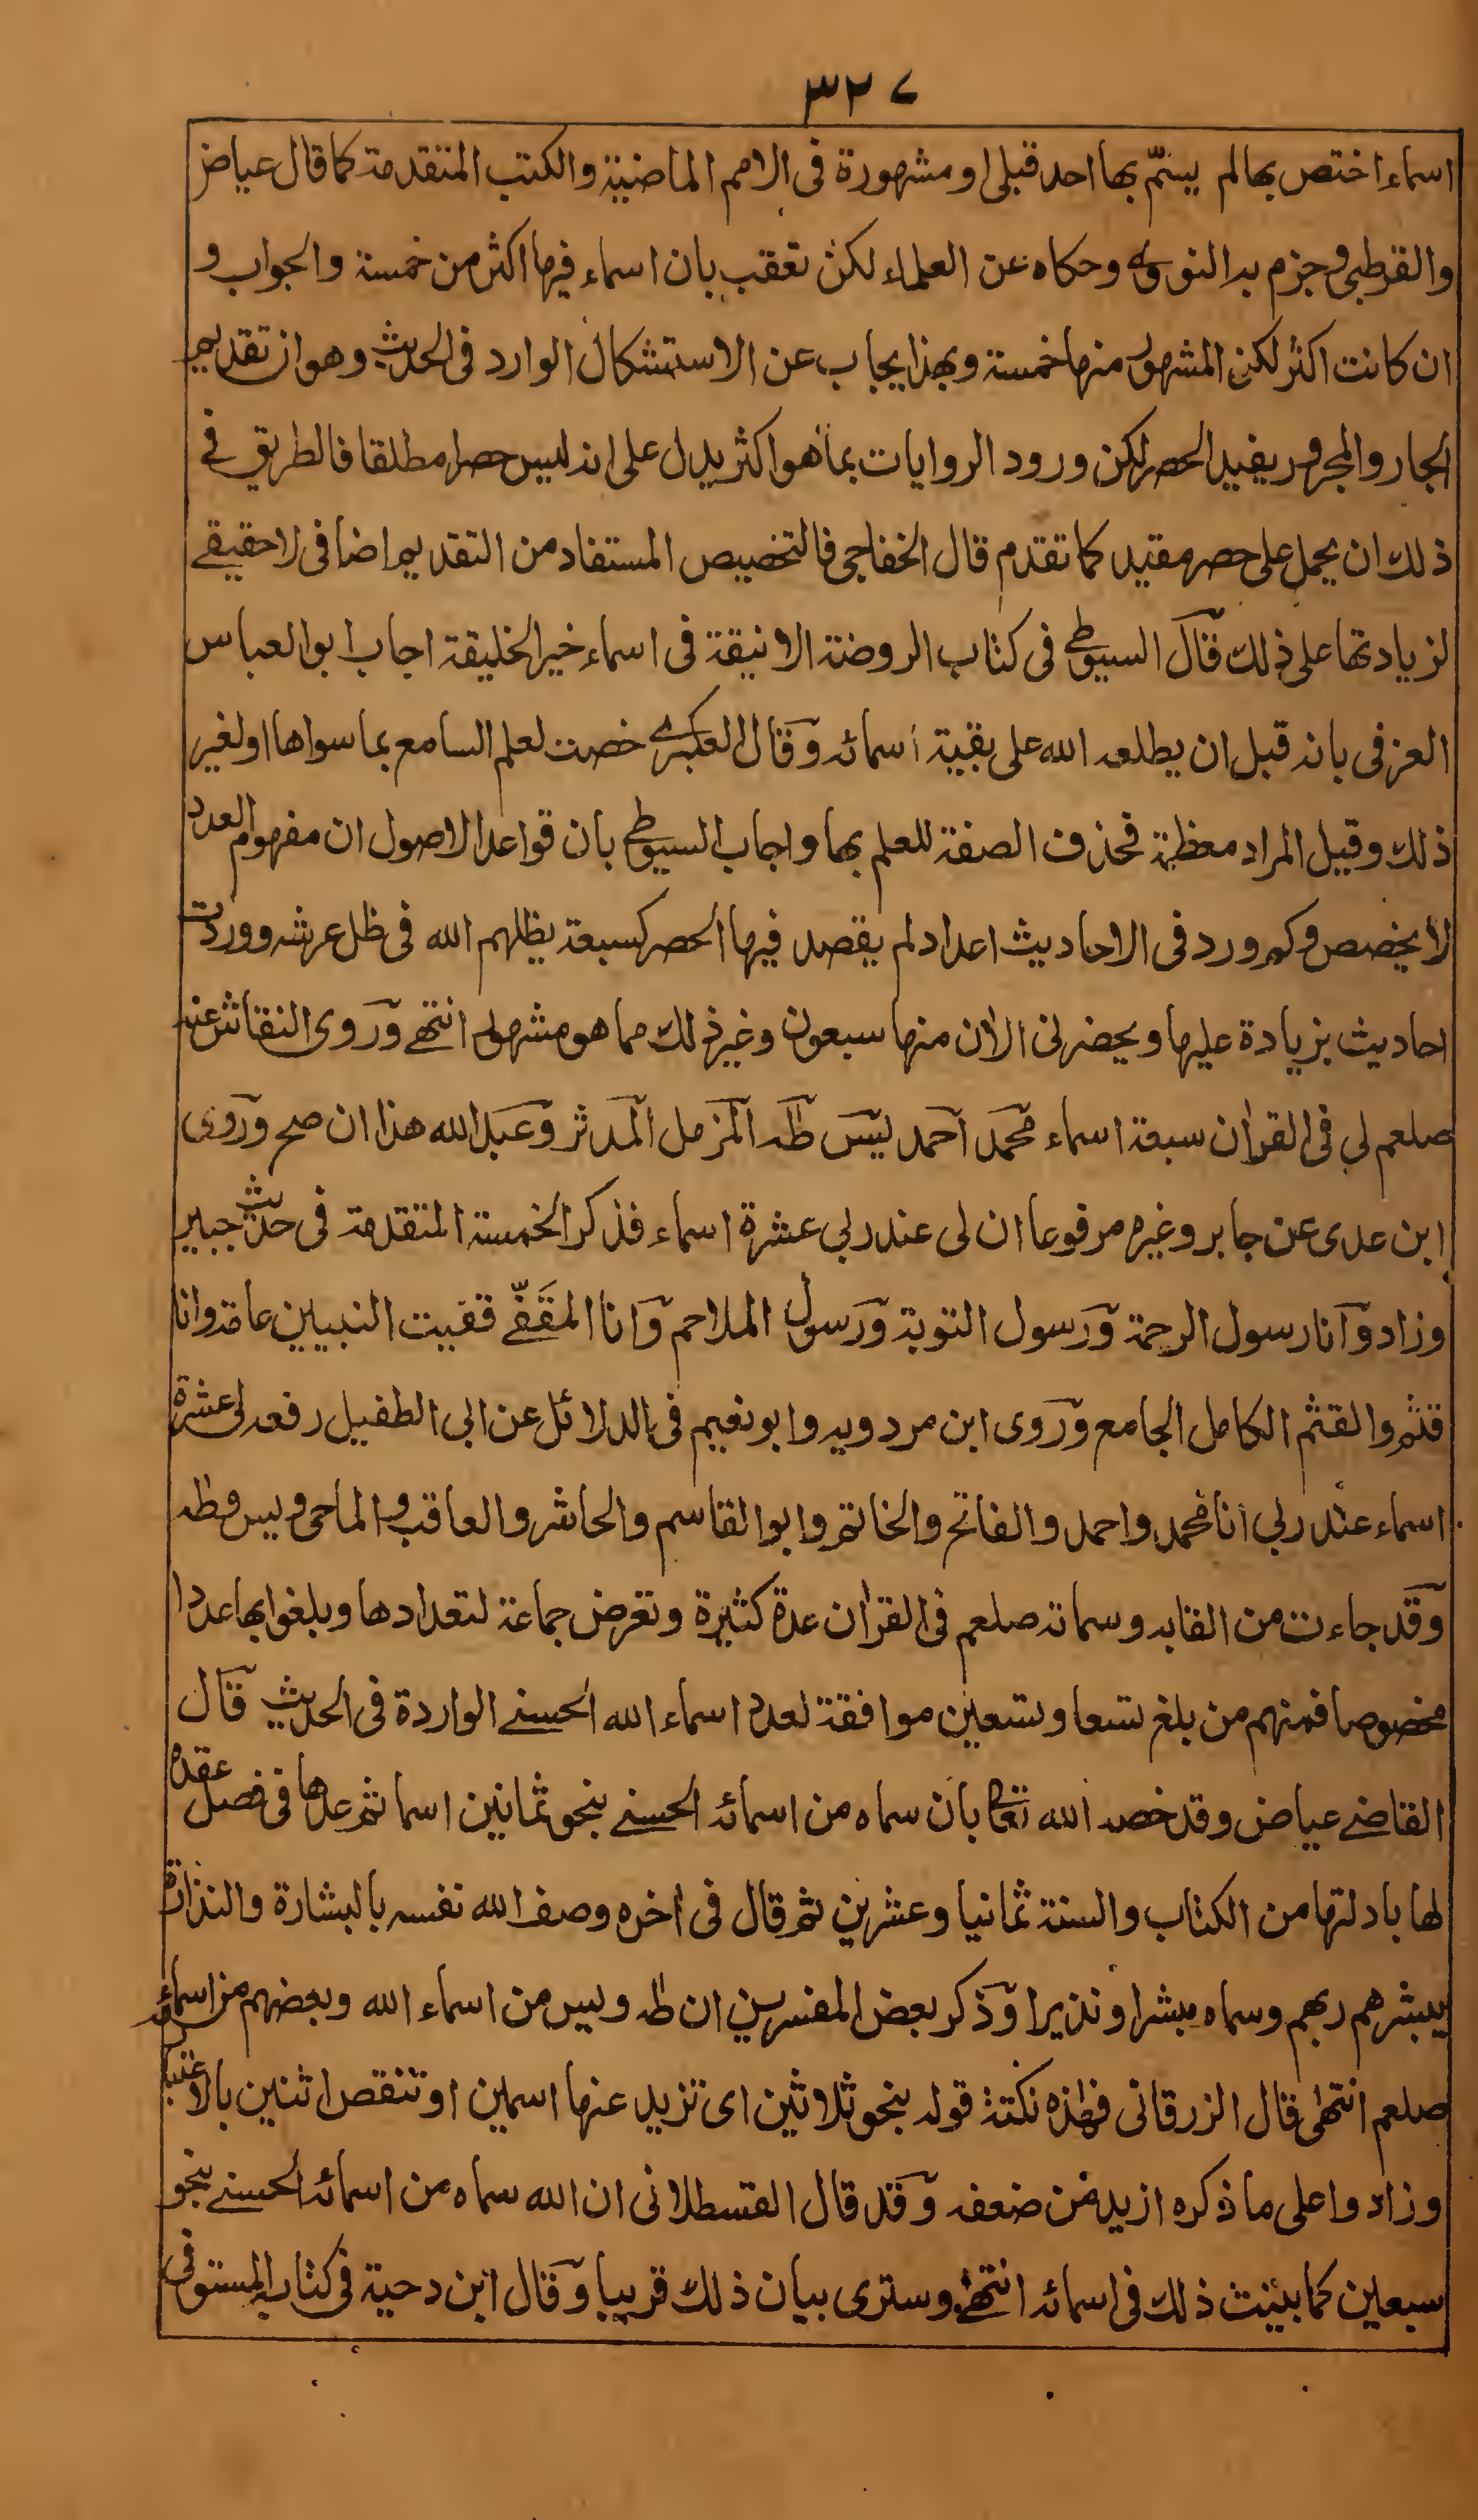 ٣٢٧
اسماء اختص بها لم يسمّ بها احد قبلى او مشهورة فى الامم الماضية والكتب المتقدمة كما قال عياض
والقرطبى وجزم به النووى وحكاه عن العلماء لكن تعقب بان اسماء فيها اكثر من خمسة والجواب و
ان كانت اكثر لكن المشهور منها خمسة وبهذا يجاب عن الاستشكال الوارد فى الحديث وهو ان تقديم
الجار والمجرور يفيد الحصر لكن ورود الروايات بما هو اكثر يدل على انه ليس حصرا مطلقا فالطريق فى
ذلك ان يحمل على حصر مقيد كما تقدم قال الخفاجى فالتخصيص المستفاد من التقديم اضافى لا حقيقے
لزيادتها على ذلك قال السيوطى فى كتاب الروضة الانيقة فى اسماء خير الخليقة اجاب ابو العباس
العزفى بانه قبل ان يطلعه الله على بقية اسمائه وقال العكبرے خصت لعلم السامع بما سواها او لغير
ذلك وقيل المراد معظمة فحذف الصفة للعلم بها واجاب السيوطى بان قواعد الاصول ان مفهوم العدد
لا يخصص وكم ورد فى الاحاديث اعداد لم يقصد فيها الحصر كسبعة يظلهم الله فى ظل عرشه ووردت
احاديث بزيادة عليها ويحضرنى الآن منها سبعون وغير ذلك مما هو مشهور انتهے وروى النقاش عنه
صلعم لى فى القرآن سبعة اسماء محمد احمد يٰسٓ طٰه المزمل المدثر وعبد الله هذا ان صح وروى
ابن عدى عن جابر وغيره مرفوعا ان لى عند ربى عشرة اسماء فذكر الخمسة المتقدمة فى حديث جبير
وزاد وانا رسول الرحمة ورسول التوبة ورسول الملاحم وانا المقَفّے قفيت النبيين عامة وانا
قثم والقثم الكامل الجامع وروى ابن مردويه وابو نعيم فى الدلائل عن ابى الطفيل رفعه لى عشرة
اسماء عند ربى انا محمد واحمد والفاتح والخاتم وابو القاسم والحاشر والعاقب والماحى ويس وطٰه
وقد جاءت من القابه وسماته صلعم فى القرآن عدة كثيرة وتعرض جماعة لتعدادها وبلغوا بها عددا
مخصوصا فمنهم من بلغ تسعا وتسعين موافقة لعدد اسماء الله الحسنے الواردة فى الحديث قال
القاضے عياض وقد خصه الله تعالى بان سماه من اسمائه الحسنے بنحو ثمانين اسما ثم عدها فى فصل عقده
لها بادلتها من الكتاب والسنة ثمانيا وعشرين ثم قال فى آخره وصف الله نفسه بالبشارة والنذارة
يبشرهم ربهم وسماه مبشرا ونذيرا وذكر بعض المفسرين ان طٰه ويس من اسماء الله وبعضهم من اسمائه
صلعم انتهٰى قال الزرقانى فهٰذه نكتة قوله بنحو ثلاثين اى تزيد عنها اسمين او تنقص اثنين بالاعتبار
وزادوا على ما ذكره ازيد من ضعفه وقد قال القسطلانى ان الله سماه من اسمائه الحسنے بنحو
سبعين كما بينت ذلك فى اسمائه انتهٰے وسترى بيان ذلك قريبا وقال ابن دحية فى كتابه المستوفى